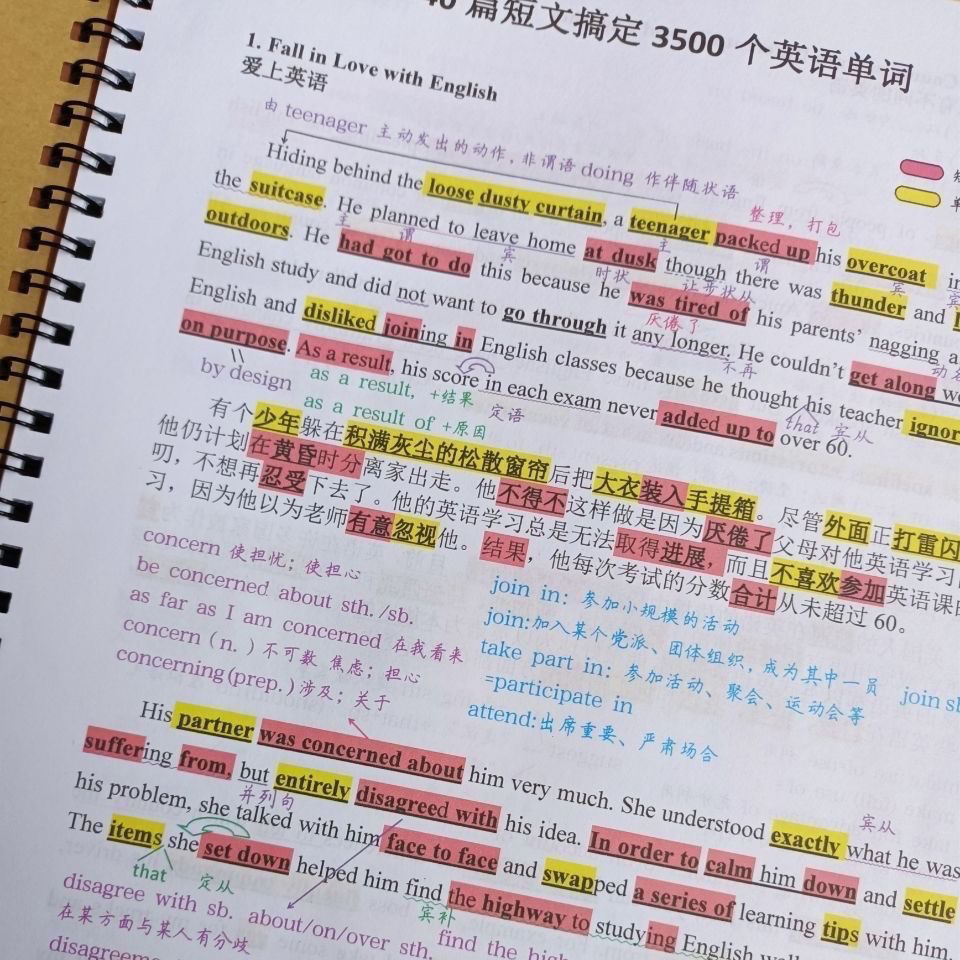 40 篇短文搞定 3500 个英语单词
1. Fall in Love with English
爱上英语
由 teenager 主动发出的动作, 非谓语 doing 作伴随状语
Hiding behind the loose dusty curtain, a teenager packed up his overcoat
整理，打包
the suitcase. He planned to leave home at dusk though there was thunder and
主 谓 宾 时状 主 谓 宾
让步状从
outdoors. He had got to do this because he was tired of his parents' nagging
厌倦了
English study and did not want to go through it any longer. He couldn't get along
不再
English and disliked joining in English classes because he thought his teacher
that 宾从
on purpose. As a result, his score in each exam never added up to over 60.
by design as a result, +结果 定语
as a result of +原因
有个少年躲在积满灰尘的松散窗帘后把大衣装入手提箱。尽管外面正打雷闪
他仍计划在黄昏时分离家出走。他不得不这样做是因为厌倦了父母对他英语学习
叨，不想再忍受下去了。他的英语学习总是无法取得进展，而且不喜欢参加英语课
习，因为他以为老师有意忽视他。结果，他每次考试的分数合计从未超过 60。
concern 使担忧；使担心
be concerned about sth./sb.
as far as I am concerned 在我看来
concern (n.) 不可数 焦虑；担心
concerning(prep.) 涉及；关于
join in: 参加小规模的活动
join:加入某个党派、团体组织，成为其中一员 join
take part in: 参加活动、聚会、运动会等
=participate in
attend:出席重要、严肃场合
His partner was concerned about him very much. She understood exactly what he was
宾从
suffering from, but entirely disagreed with his idea. In order to calm him down and settle
并列句
his problem, she talked with him face to face and swapped a series of learning tips with him.
The items she set down helped him find the highway to studying English
that 定从 宾补
disagree with sb. about/on/over sth. find the
在某方面与某人有分歧